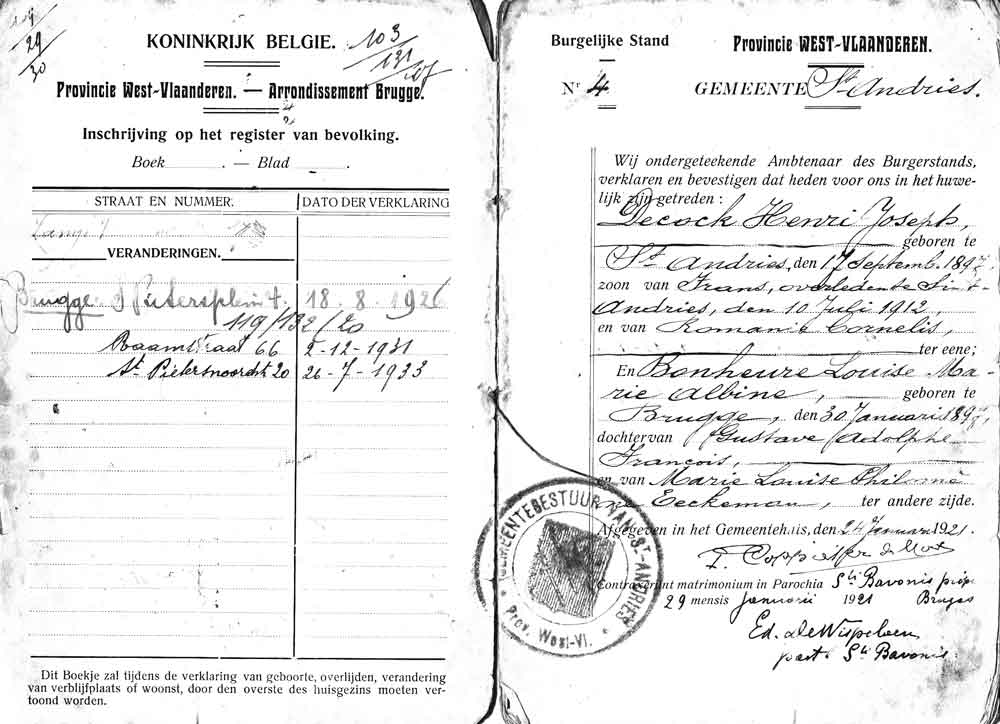 29
30
KONINKRIJK BELGIE.
103
131
Provincie West-Vlaanderen. — Arrondissement Brugge.
Inschrijving op het register van bevolking.
Boek . — Blad .
STRAAT EN NUMMER. DATO DER VERKLARING
VERANDERINGEN.
Brugge St Pietersplein 4. 18-8-1926
119/132/20
Raamstraat 66 2-12-1931
St. Pietersnoordstr 20 26-7-1933
Dit Boekje zal tijdens de verklaring van geboorte, overlijden, verandering
van verblijfplaats of woonst, door den overste des huisgezins moeten ver-
toond worden.
Burgelijke Stand Provincie WEST-VLAANDEREN.
Nr 4 GEMEENTE St Andries.
Wij ondergeteekende Ambtenaar des Burgerstands,
verklaren en bevestigen dat heden voor ons in het huwe-
lijk zijn getreden :
Decock Henri Joseph,
geboren te
St Andries, den 17 Septemb. 1897
zoon van Frans, overledente Sint-
Andries, den 10 Juli 1912,
en van Romanie Cornelis,
ter eene;
En Bonheure Louise Ma-
rie Albine, geboren te
Brugge, den 30 Januari 1898,
dochter van Gustave Adolphe
François,
en van Marie Louise Philome
ne Eeckeman, ter andere zijde.
Afgegeven in het Gemeentehuis, den 24 Januari 1921.
Contraxerunt matrimonium in Parochia Sti Bavonis prope
29 mensis Januarii 1921 Bruges
Ed. deWispelaere
past. Sti Bavonis.
GEMEENTEBESTUUR VAN ST-ANDRIES
Prov. West-Vl.